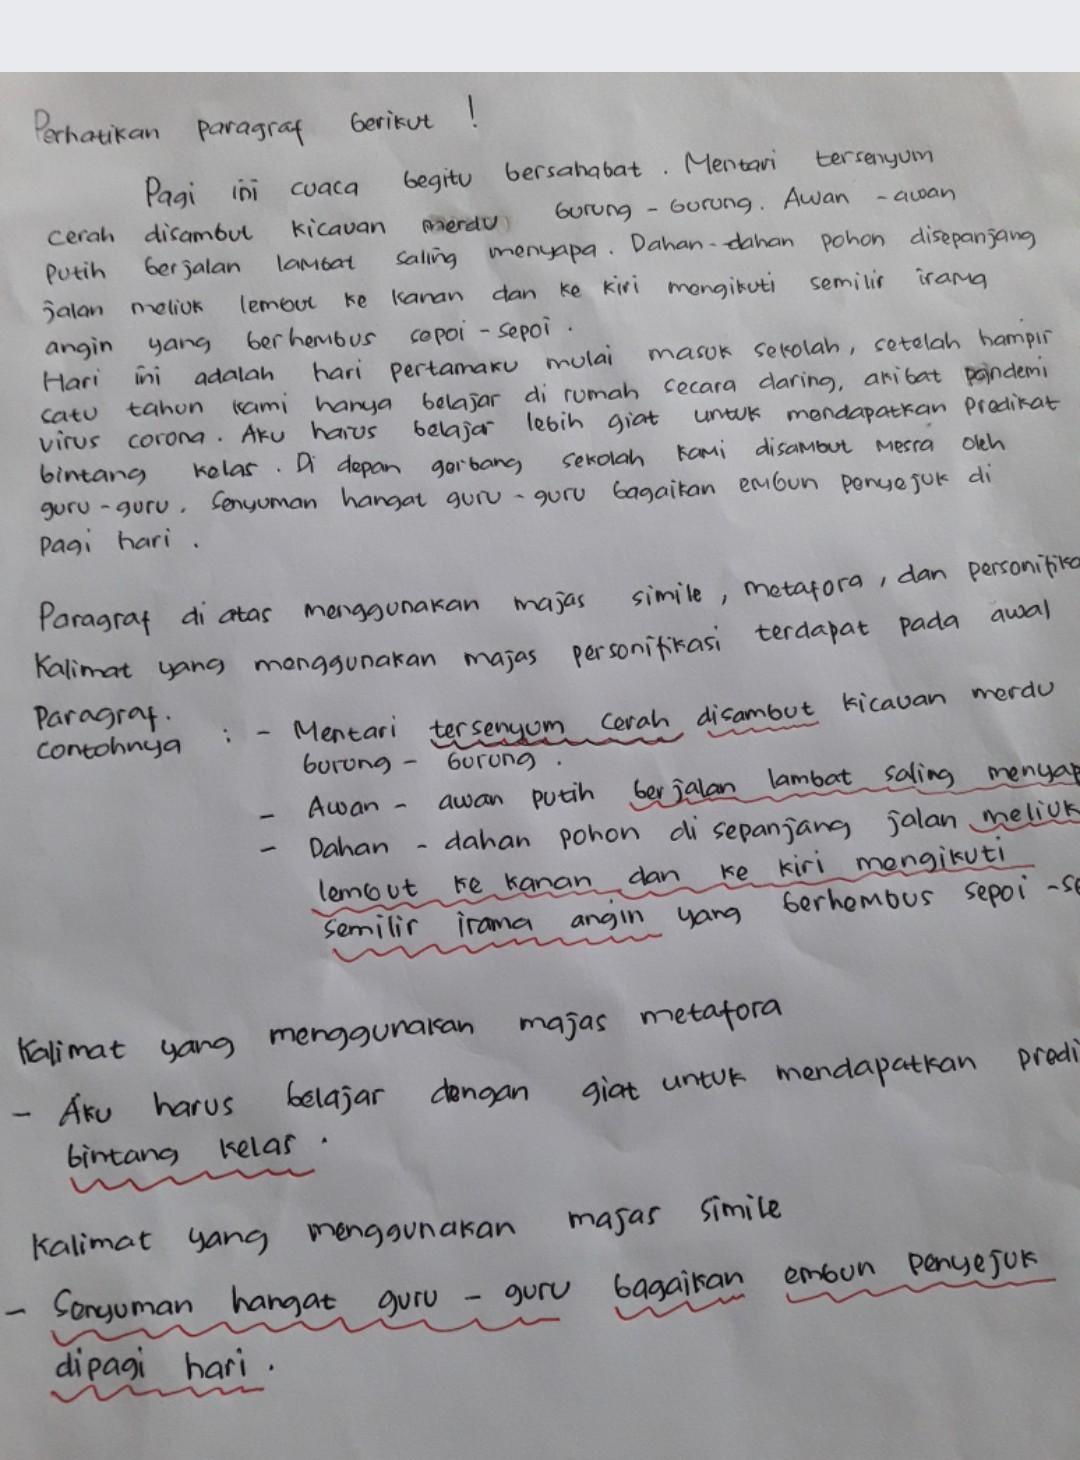 Perhatikan paragraf berikut !
Pagi ini cuaca begitu bersahabat. Mentari tersenyum
cerah disambut kicauan merdu burung - burung. Awan - awan
putih berjalan lambat saling menyapa. Dahan-dahan pohon disepanjang
jalan meliuk lembut ke kanan dan ke kiri mengikuti semilir irama
angin yang berhembus sepoi - sepoi.
Hari ini adalah hari pertamaku mulai masuk sekolah, setelah hampir
satu tahun kami hanya belajar di rumah secara daring, akibat pandemi
virus corona. Aku harus belajar lebih giat untuk mendapatkan Predikat
bintang kelas. Di depan gerbang sekolah kami disambut mesra oleh
guru - guru. Senyuman hangat guru - guru bagaikan embun penyejuk di
pagi hari.
Paragraf di atas menggunakan majas simile, metafora, dan personifika
Kalimat yang menggunakan majas personifikasi terdapat pada awal
paragraf.
contohnya : - Mentari tersenyum cerah disambut kicauan merdu
burung - burung.
- Awan - awan putih berjalan lambat saling menyap
- Dahan - dahan pohon di sepanjang jalan meliuk
lembut ke kanan dan ke kiri mengikuti
semilir irama angin yang berhembus sepoi - se
Kalimat yang menggunakan majas metafora
- Aku harus belajar dengan giat untuk mendapatkan predi
bintang kelas.
Kalimat yang menggunakan majas simile
- Senyuman hangat guru - guru bagaikan embun penyejuk
dipagi hari.